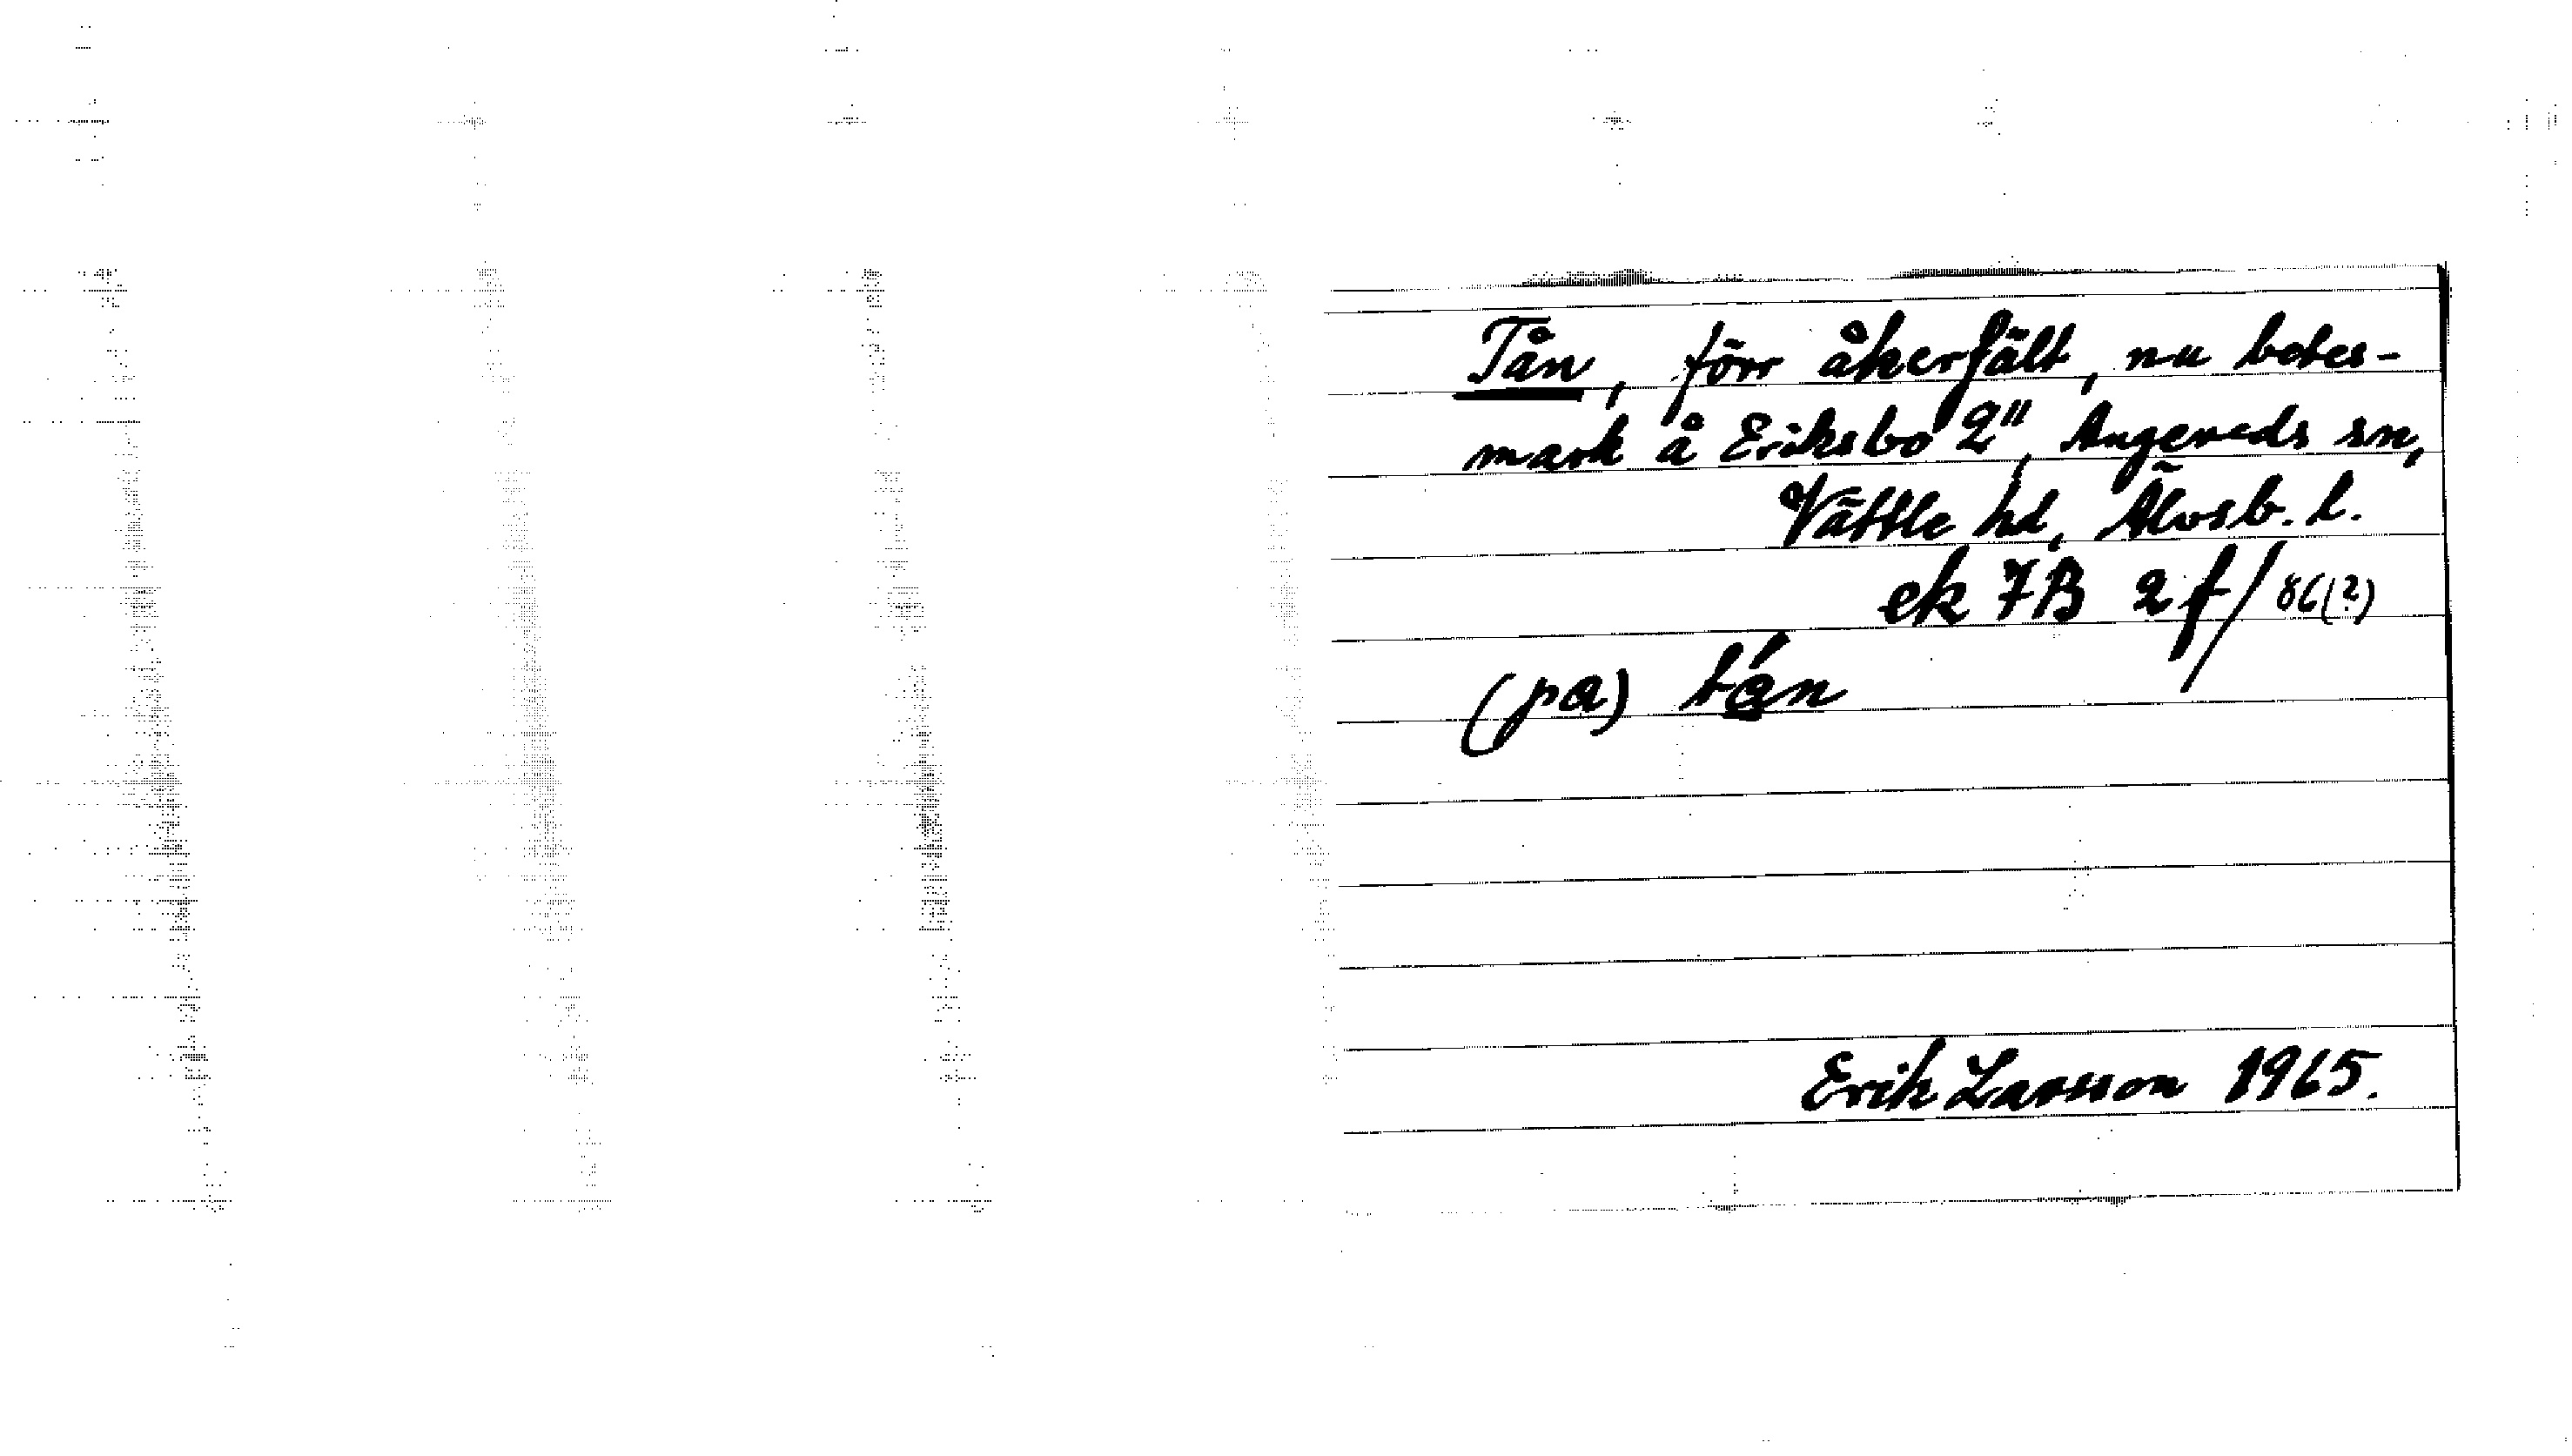 Tån, förr åkerfält, nu betes-
mark å Eriksbo 2", Angereds sn,
Vättle hd, Älvsb. l.
ek 7B 2f/86(?)
(pa) tán
Erik Larsson 1965.